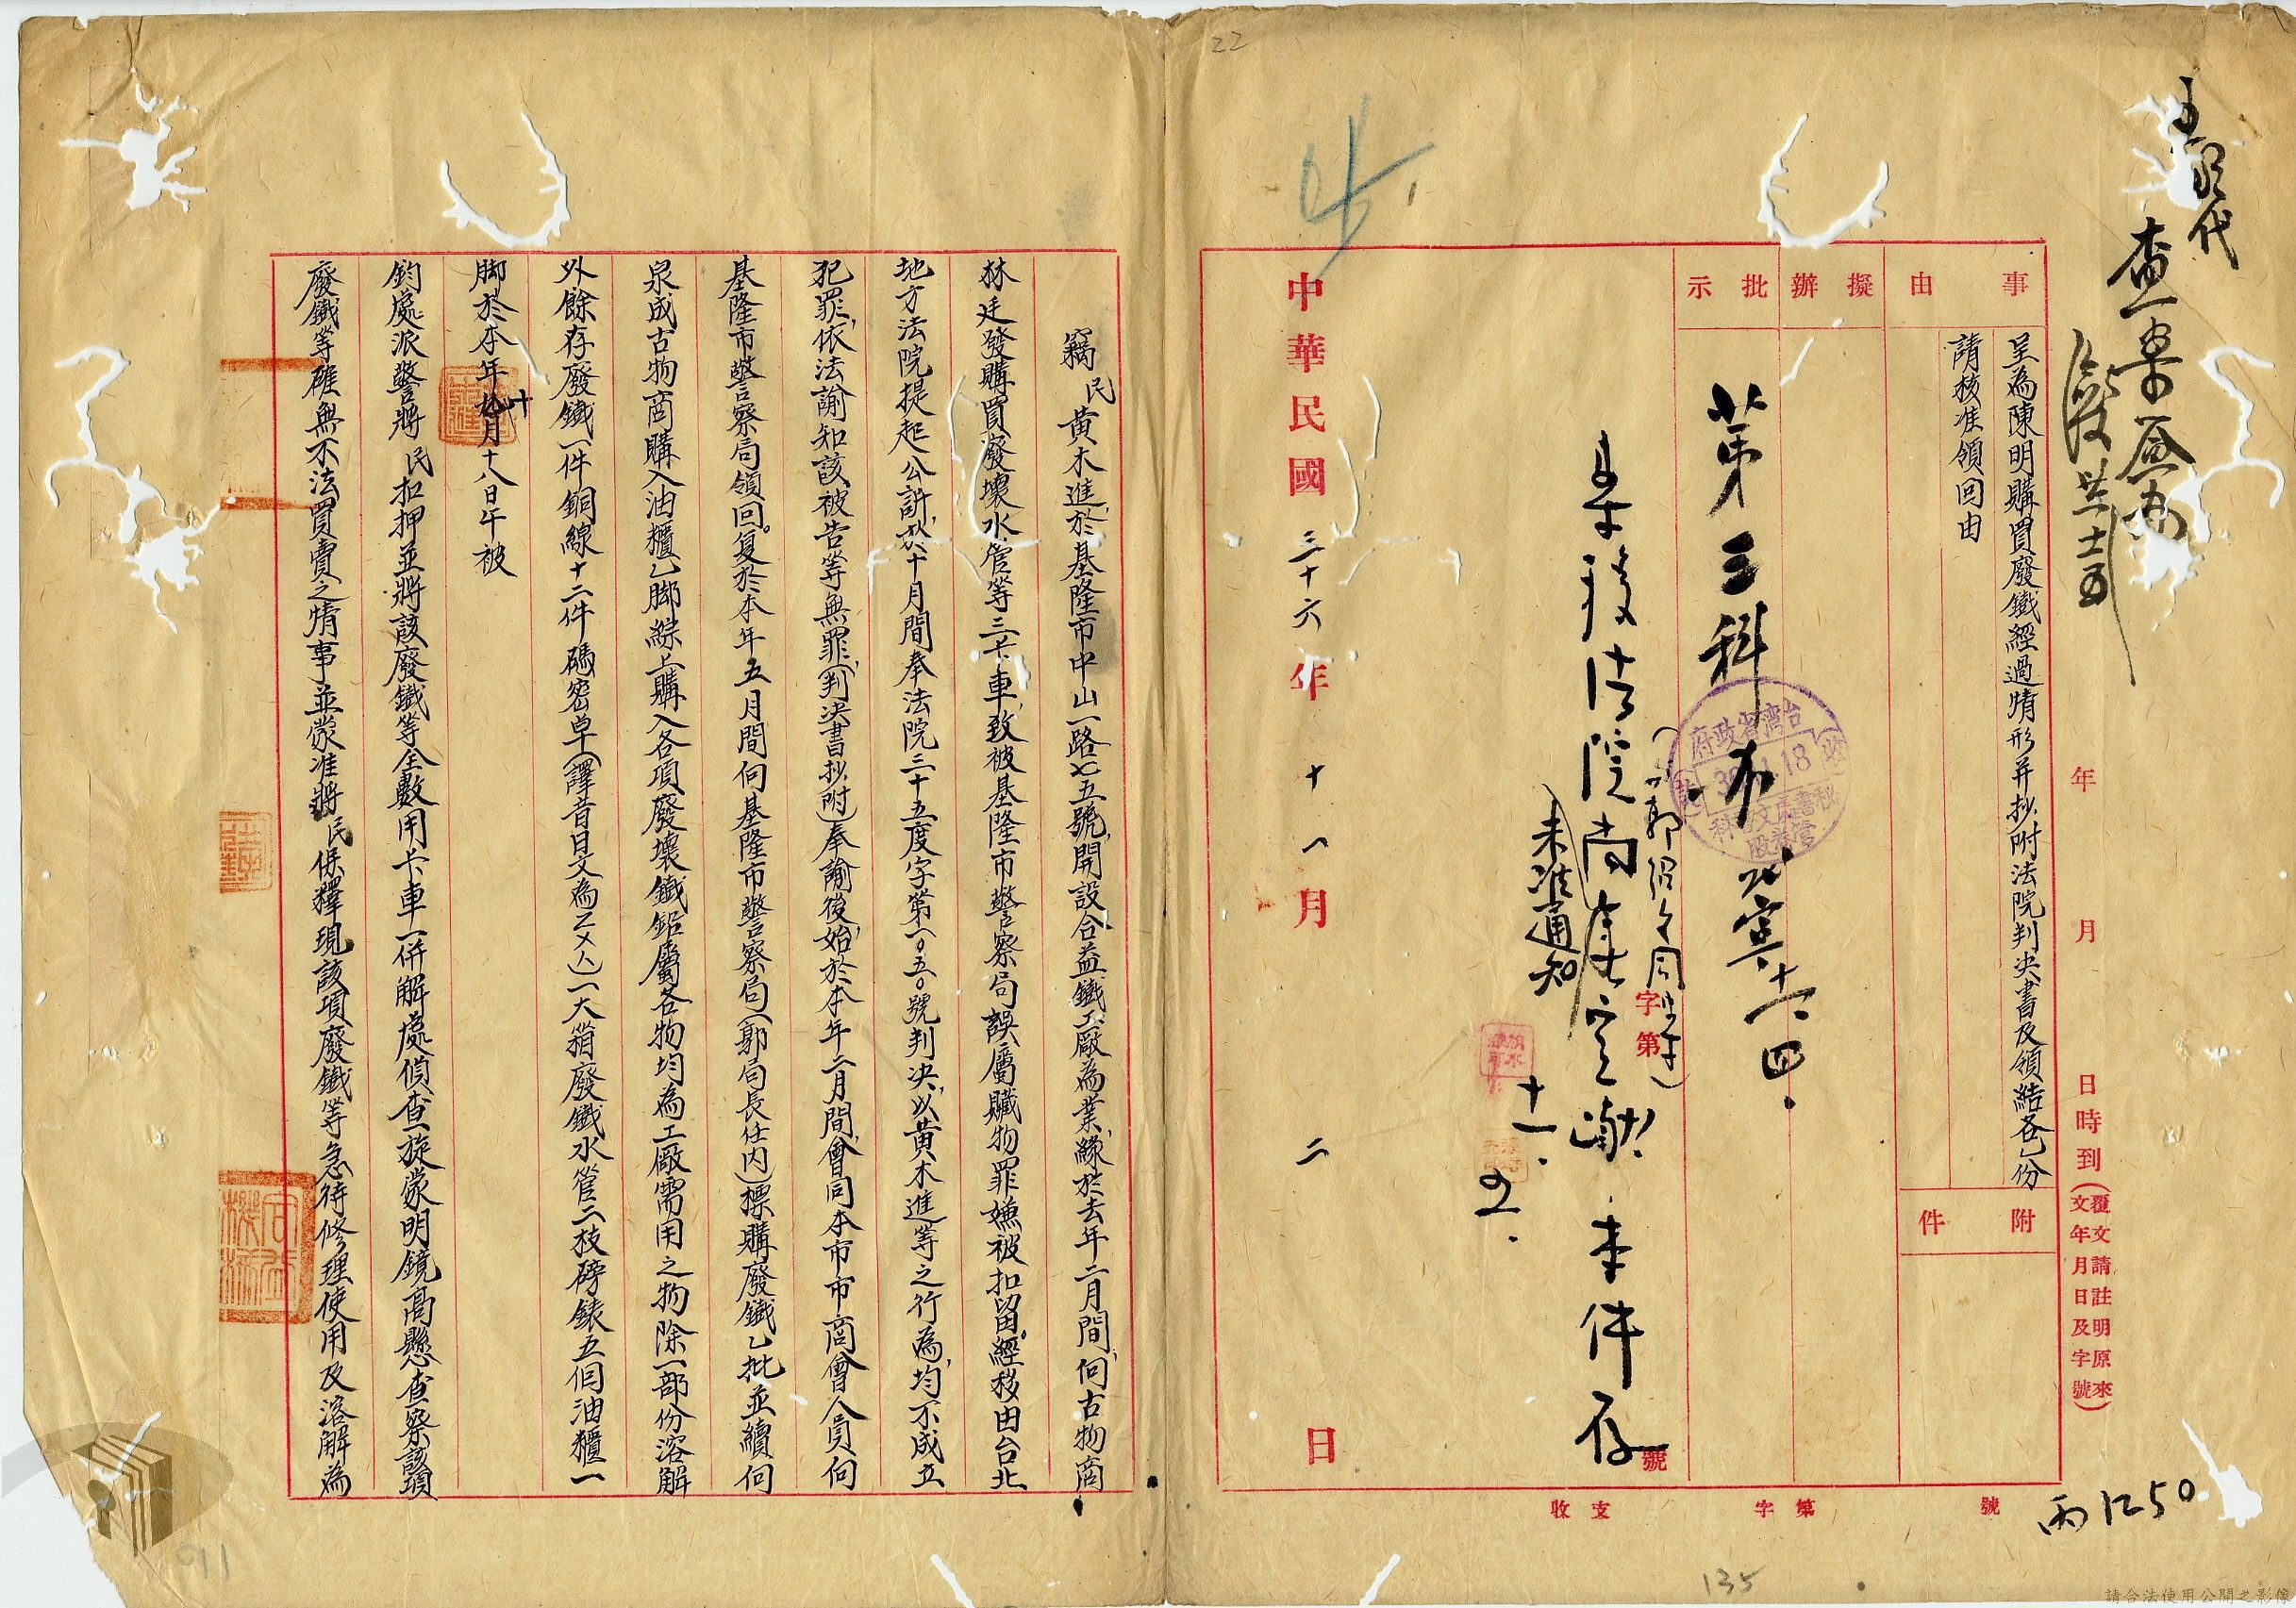 22
查案
事由
呈為陳明購買廢鐵經過情形并抄附法院判決書及領結各乙份
請核准領回由
附件
擬辦
批示
年 月 日時到(覆文請註明原來文年月日及字號)
第三科
未准通知
十一.
來件存
字第 號
中華民國三十六年十一月二日
台灣省政府
收支 字第 號
丙1250
135
竊民黃木進,於基隆市中山一路七五號,開設合益鐵工廠為業,緣於去年二月間,向古物商
林廷發購買廢壞水管等三卡車,致被基隆市警察局誤屬贓物罪嫌被扣留。經移由台北
地方法院提起公訴,於十月間奉法院三十五度字第一〇五〇號判決,以黃木進等之行為,均不成立
犯罪,依法諭知該被告等無罪,(判決書抄附)奉諭後,始於本年二月間,會同本市市商會人員向
基隆市警察局領回。复於本年五月間向基隆市警察局(郭局長任内)標購廢鐵乙批並續向
泉成古物商購入油櫃乙脚綜上購入各項廢壞鐵鉛屬各物均為工廠需用之物除一部份溶解
外餘存廢鐵一件銅線十二件碼窓卓(譯昔日文為ㄨ)一大箱廢鐵水管二枝磅錶五個油櫃一
脚於本年十月十八日午被
鈞處派警將民扣押並將該廢鐵等全數用卡車一併解處偵查旋蒙明鏡高懸查察該項
廢鐵等確無不法買賣之情事並蒙准將民保釋現該項廢鐵等急待修理使用及溶解為
91
請合法使用公開之影像